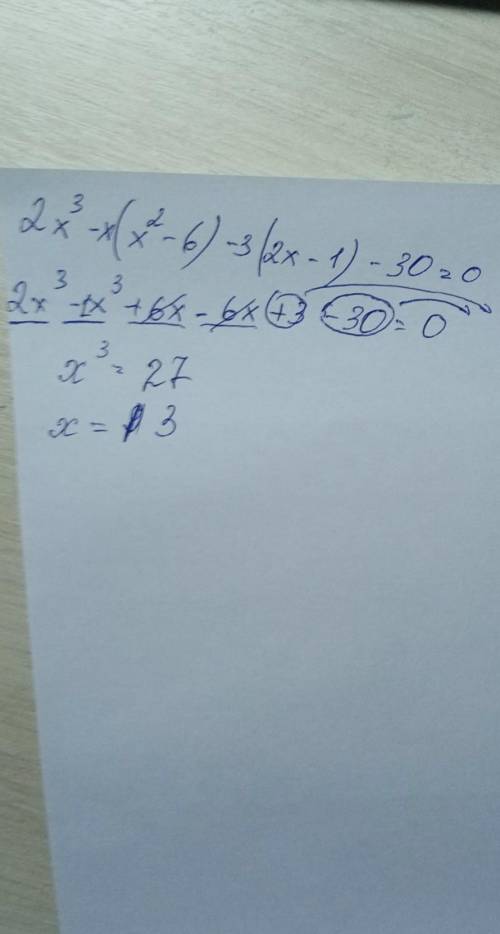 2x³ - x(x² - 6) - 3(2x - 1) - 30 = 0
2x³ - 1x³ + 6x - 6x + 3 - 30 = 0
x³ = 27
x = 3